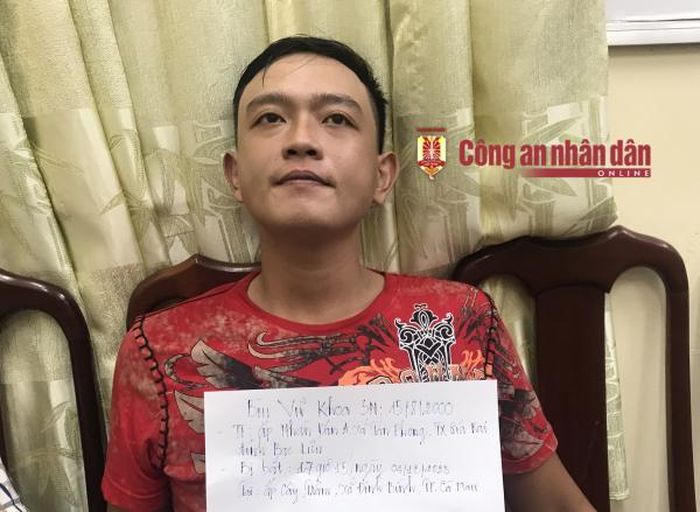 Công an nhân dân
ONLINE
Bùi Vũ Khoa SN: 15/8/2000
- TT: ấp Nhàn Dân A xã Tân Phong, TX Giá Rai
tỉnh Bạc Liêu
- Bị bắt: 17 giờ 15, ngày
Tại: ấp Cây Trâm, xã Định Bình, TP. Cà Mau